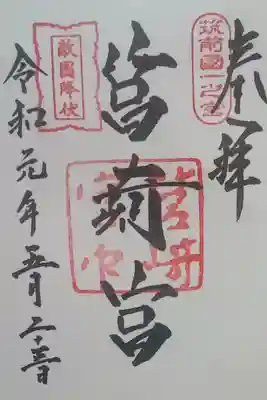 奉拝
筑前國一之宮
筥崎宮
敵國降伏
令和元年五月二十三日